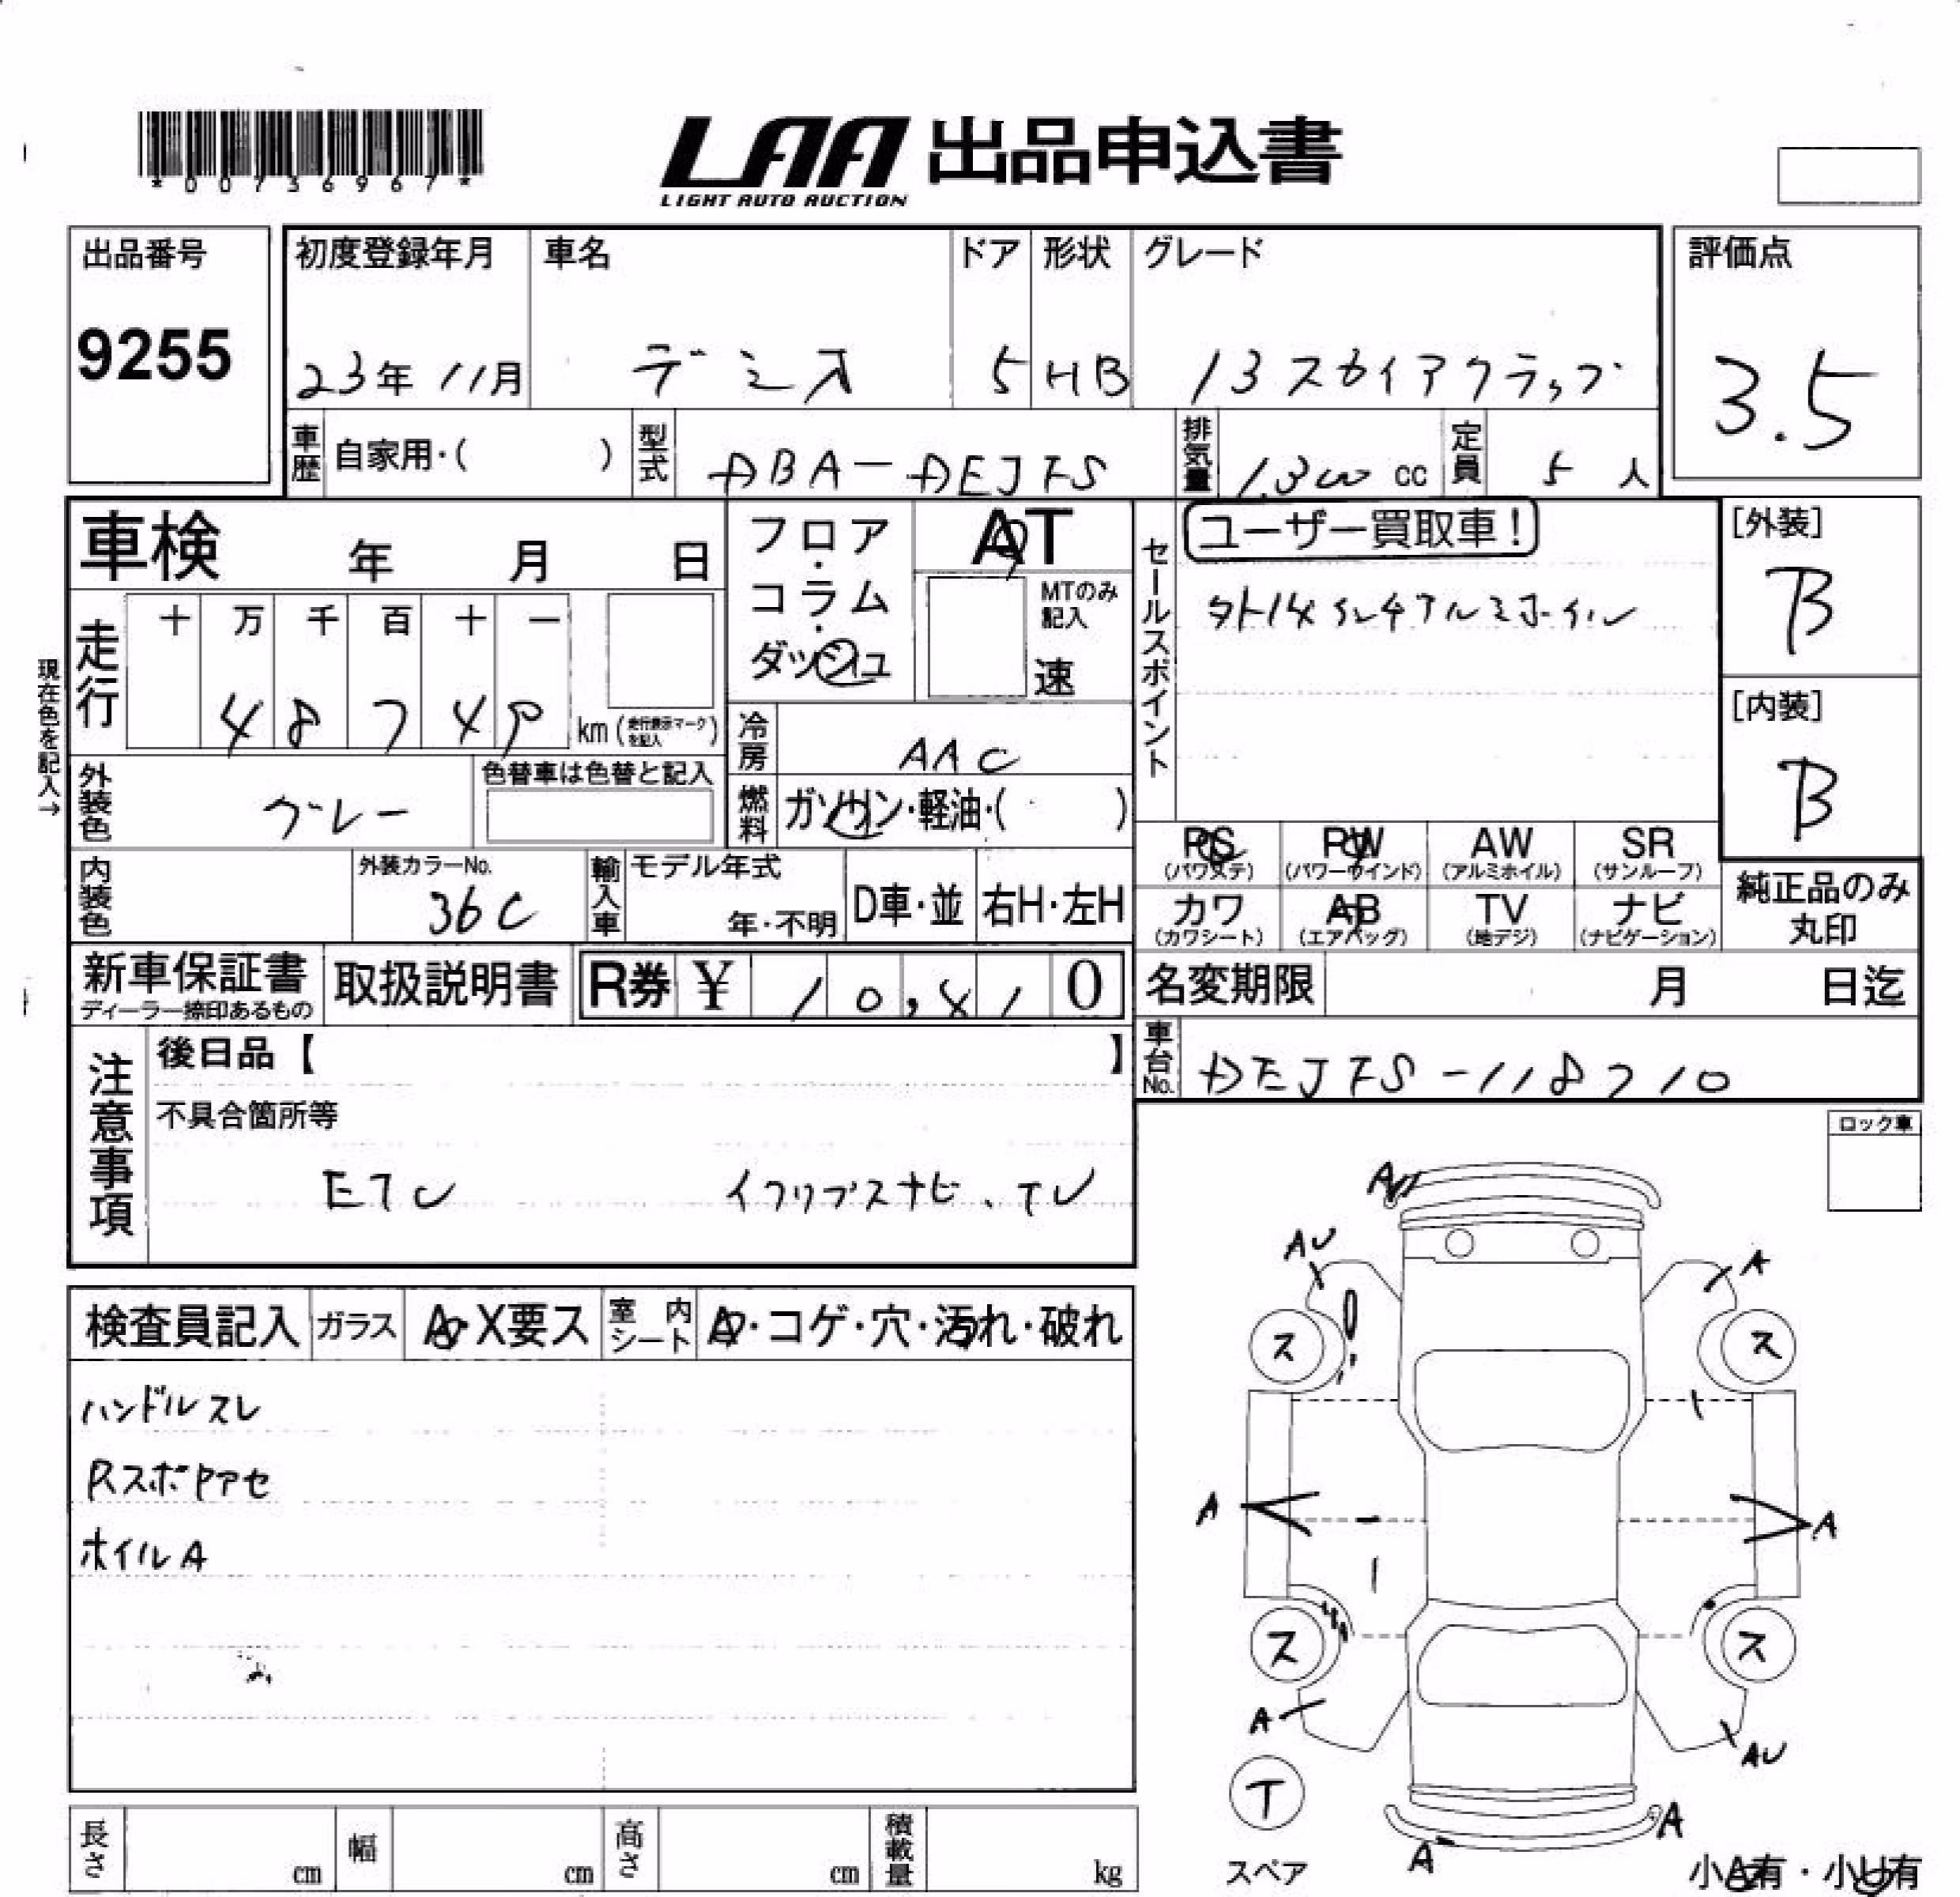 *00736967*
LAA 出品申込書
LIGHT AUTO AUCTION
出品番号
9255
初度登録年月
23年 11月
車名
デミオ
ドア
5
形状
HB
グレード
13スカイアクラップ
評価点
3.5
車歴 自家用・( )
型式 DBA-DEJFS
排気量 1,300 cc
定員 5 人
車検 年 月 日
フロア・コラム・ダッシュ
AT
MTのみ記入
速
セールスポイント
ユーザー買取車!
[外装]
B
現在色を記入→
走行
十 万 千 百 十 一
4 8 7 4 9 km (走行表示マークを記入)
[内装]
B
冷房 AAC
外装色 グレー
色替車は色替と記入
燃料 ガソリン・軽油・( )
PS (パワステ) PW (パワーウインド) AW (アルミホイル) SR (サンルーフ)
カワ (カワシート) AB (エアバッグ) TV (地デジ) ナビ (ナビゲーション)
純正品のみ丸印
内装色
外装カラーNo.
36C
輸入車
モデル年式
年・不明
D車・並
右H・左H
新車保証書
ディーラー捺印あるもの
取扱説明書
R券 ¥ 10,410
名変期限 月 日迄
車台No. DEJFS-118710
注意事項
後日品【 】
不具合箇所等
ETC イクリプスナビ、TV
ロック車
検査員記入
ガラス A・X要ス
室内シート A・コゲ・穴・汚れ・破れ
ハンドルスレ
RスポPアセ
ホイルA
A
AU A
ス ス
A A
ス ス
A AU
T
スペア
A A
小A有・小U有
長さ cm
幅 cm
高さ cm
積載量 kg